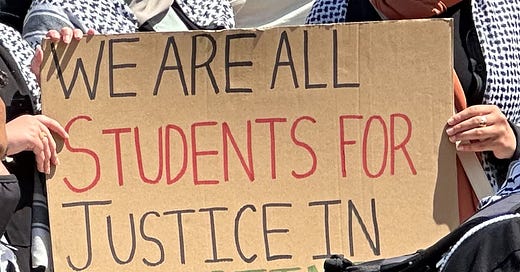 WE ARE ALL
STUDENTS FOR
JUSTICE IN